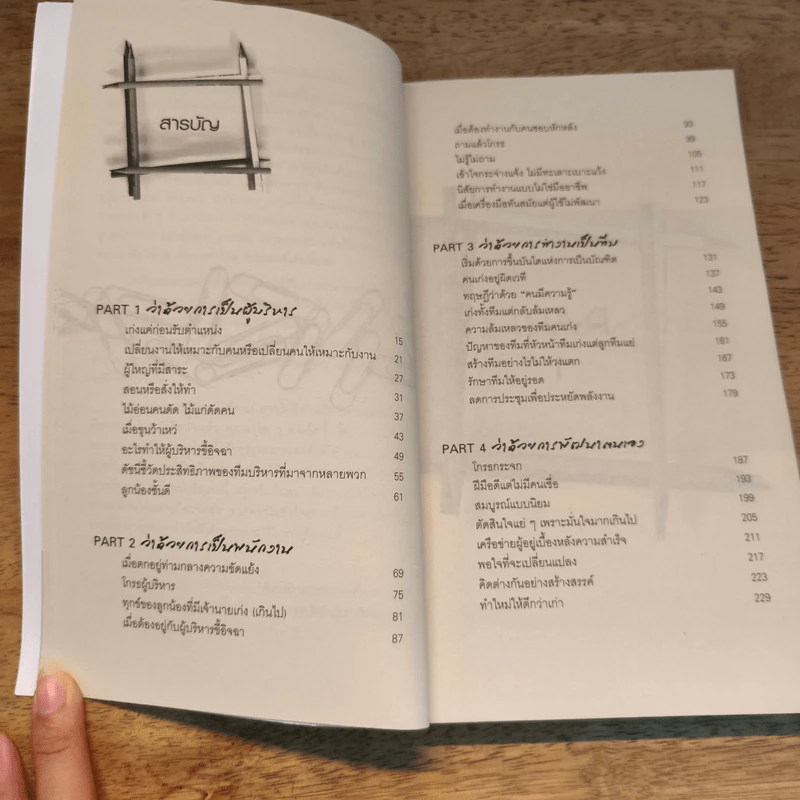 สารบัญ
PART 1 ว่าด้วยการเป็นผู้บริหาร
เก่งแค่ก่อนรับตำแหน่ง 15
เปลี่ยนงานให้เหมาะกับคนหรือเปลี่ยนคนให้เหมาะกับงาน 21
ผู้ใหญ่ที่มีสาระ 27
สอนหรือสั่งให้ทำ 31
ไม้อ่อนคนดัด ไม้แก่ดัดคน 37
เมื่อขุนว้าเหว่ 43
อะไรทำให้ผู้บริหารขี้อิจฉา 49
ดัชนีชี้วัดประสิทธิภาพของทีมบริหารที่มาจากหลายพวก 55
ลูกน้องชั้นดี 61
PART 2 ว่าด้วยการเป็นพนักงาน
เมื่อตกอยู่ท่ามกลางความขัดแย้ง 69
โกรธผู้บริหาร 75
ทุกข์ของลูกน้องที่มีเจ้านายเก่ง (เกินไป) 81
เมื่อต้องอยู่กับผู้บริหารขี้อิจฉา 87
เมื่อต้องทำงานกับคนชอบหักหลัง 93
ถามแล้วโกรธ 99
ไม่รู้ไม่ถาม 105
เข้าใจกระจ่างแจ้ง ไม่มีทะเลาะเบาะแว้ง 111
นิสัยการทำงานแบบไม่ใช่มืออาชีพ 117
เมื่อเครื่องมือทันสมัยแต่ผู้ใช้ไม่พัฒนา 123
PART 3 ว่าด้วยการทำงานเป็นทีม
เริ่มด้วยการขึ้นบันไดแห่งการเป็นบัณฑิต 131
คนเก่งอยู่ผิดเวที 137
ทฤษฎีว่าด้วย "คนมีความรู้" 143
เก่งทั้งทีมแต่กลับล้มเหลว 149
ความล้มเหลวของทีมคนเก่ง 155
ปัญหาของทีมที่หัวหน้าทีมเก่งแต่ลูกทีมแย่ 161
สร้างทีมอย่างไรไม่ให้วงแตก 167
รักษาทีมให้อยู่รอด 173
ลดการประชุมเพื่อประหยัดพลังงาน 179
PART 4 ว่าด้วยการพัฒนาตนเอง
โกรธกระจก 187
ฝีมือดีแต่ไม่มีคนเชื่อ 193
สมบูรณ์แบบนิยม 199
ตัดสินใจแย่ ๆ เพราะมั่นใจมากเกินไป 205
เครือข่ายผู้อยู่เบื้องหลังความสำเร็จ 211
พอใจที่จะเปลี่ยนแปลง 217
คิดต่างกันอย่างสร้างสรรค์ 223
ทำใหม่ให้ดีกว่าเก่า 229